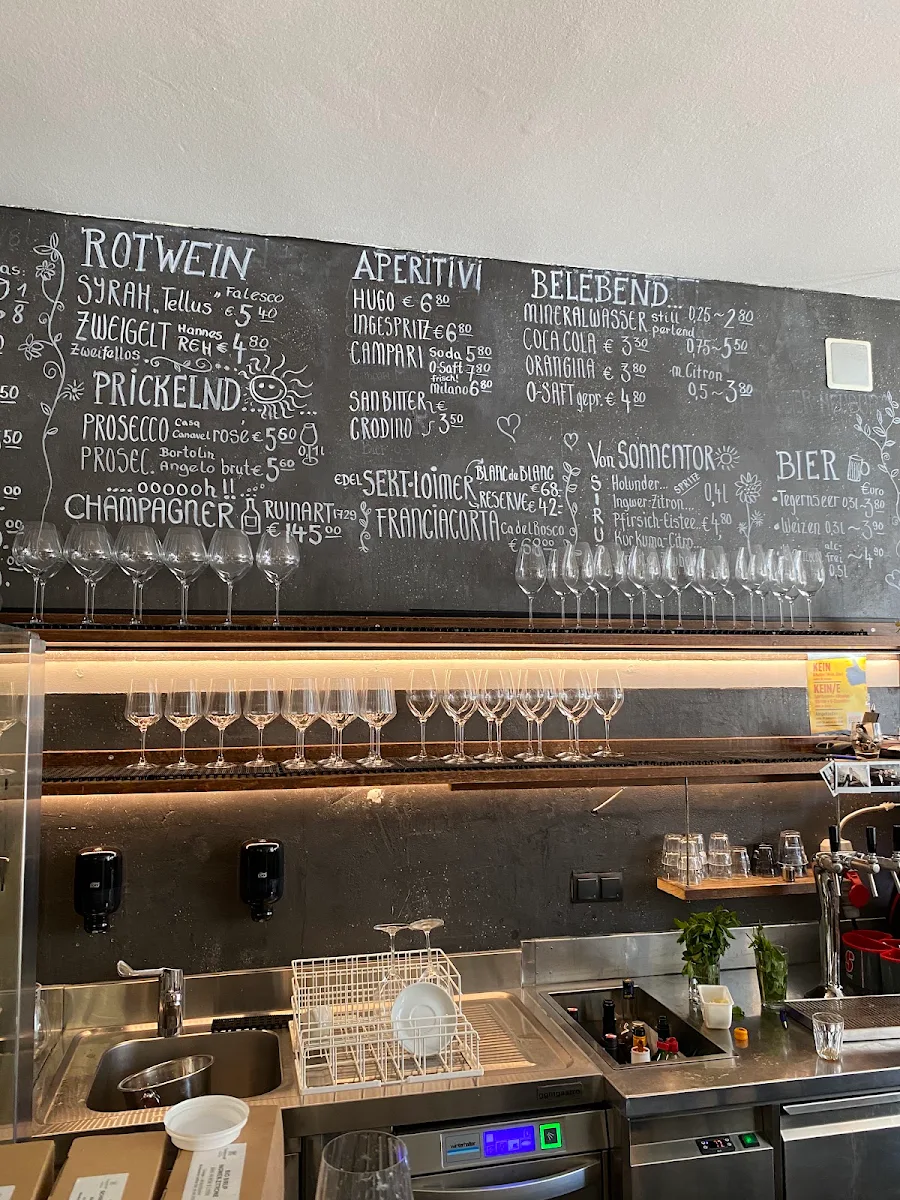 as:
8
50
50
00
00
ROTWEIN
SYRAH „Tellus" Falesco € 5 40
ZWEIGELT Hannes REH € 4 80
Zweifellos
PRICKELND...
PROSECCO Casa Canavel rosé € 5 60
PROSEC. Bortolin Angelo brut € 5 60
0,1l
.... oooooh !! ....
CHAMPAGNER RUINART 1729
€ 145 00
APERITIVI
HUGO € 6 80
INGESPRITZ € 6 80
CAMPARI Soda 5 80
O-Saft 7 80
frisch!
Milano 6 80
SANBITTER €
CRODINO 3 50
EDEL SEKT-LOIMER BLANC de BLANC € 68.-
RESERVE € 42-
FRANCIACORTA Ca del Bosco
BELEBEND...
MINERALWASSER still 0,25 ~ 2 80
perlend 0,75 ~ 5 50
COCA COLA € 3 30
ORANGINA € 3 80
m. Citron 0,5 ~ 3 80
O-SAFT gepr. € 4 80
Von SONNENTOR
SIRU
SPRITZ
Holunder...
Ingwer-Zitron... 0,4l
Pfirsich-Eistee.. € 4,80
Kurkuma-Citro
BIER
Euro
• Tegernseer 0,3l
• Weizen 0,3l ~ 3 90
alc-frei 0,5l ~ 4 90
KEIN
KEIN/E
winterhalter